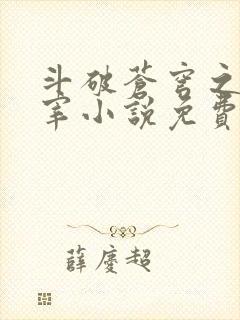 斗破蒼穹之
宰小說免費
薛慶超